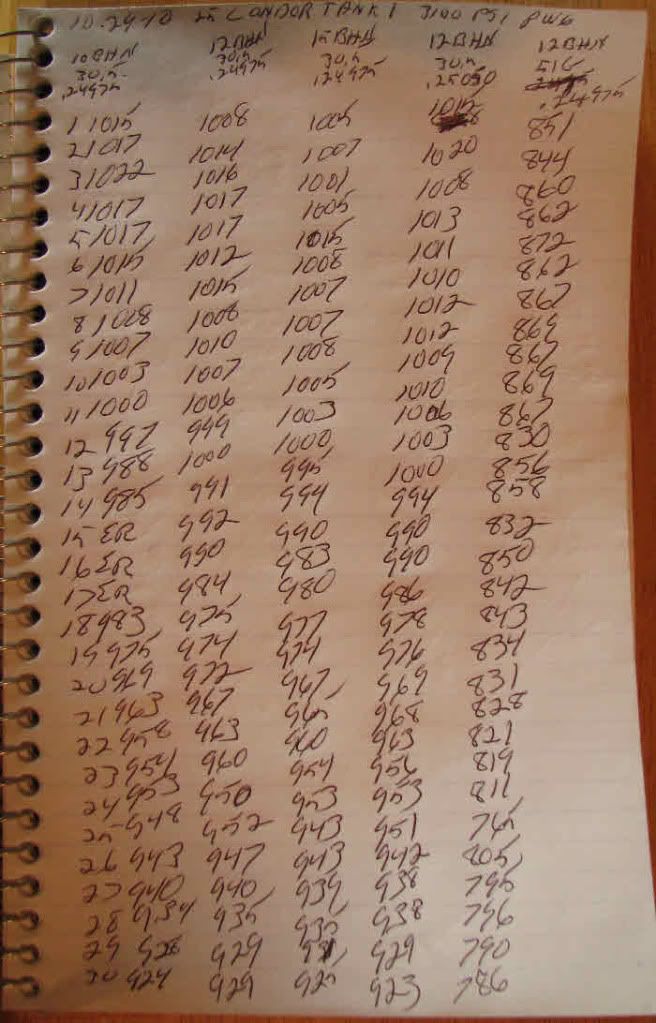 10.29.10 25 CONDOR TANK 1 3100 PSI PW6
10 BHN 12 BHN 15 BHN 12 BHN 12 BHN
30.5 30.5 30.5 30.5 51G
.24975 .24975 .24975 .25050 .24975
1 1015 1008 1005 1015 851
2 1017 1014 1007 1020 844
3 1022 1016 1001 1008 860
4 1017 1017 1005 1013 862
5 1017 1017 1015 1011 872
6 1015 1012 1008 1010 862
7 1011 1015 1007 1012 867
8 1008 1008 1007 1012 869
9 1007 1010 1008 1009 867
10 1003 1007 1005 1010 869
11 1000 1006 1003 1006 867
12 997 999 1000 1003 830
13 988 1000 995 1000 856
14 985 991 994 994 858
15 ER 992 990 990 832
16 ER 990 983 990 850
17 ER 984 980 986 842
18 983 975 977 978 843
19 975 974 974 976 834
20 969 972 967 969 831
21 963 967 965 968 828
22 958 963 960 963 821
23 954 960 954 956 819
24 953 950 953 953 811
25 948 952 943 951 765
26 943 947 943 942 805
27 940 940 939 938 795
28 934 935 935 938 796
29 928 929 931 929 790
30 924 929 925 923 786